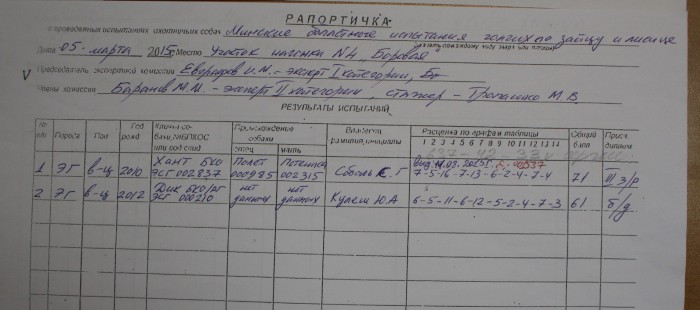 РАПОРТИЧКА
о проведенных испытаниях охотничьих собак Минские областные испытания гончих по зайцу и лисице
Дата 05 марта 2015 Место Участок нагонки N4 „Боровая"
V
Председатель экспертной комиссии И.М. - эксперт I категории,
Члены комиссии Баранов М.М. - эксперт II категории, стажер - М.В.
РЕЗУЛЬТАТЫ ИСПЫТАНИЙ
№ п/п Порода Пол Год рожд Кличка собаки, №БПКОС или род спид Происхождение собаки отец мать Владелец, фамилия, инициалы Расценка по графам таблицы 1 2 3 4 5 6 7 8 9 10 11 12 13 14 Общий балл Прис диплом
1 ЭГ в-ц 2010 Хант БКО ЭСГ 002837 Полет 000985 002315 Соболь Г 7-5-16-7-13-6-2-4-7-4 71 III з/р
2 ЭГ в-ц 2012 Дик БКО/рг ЭСГ 000210 нет данных нет данных Кулеш Ю.А 6-5-11-6-12-5-2-4-7-3 61 б/д